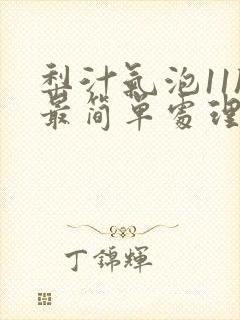 梨汁氣泡11
最簡單處理
丁錦輝